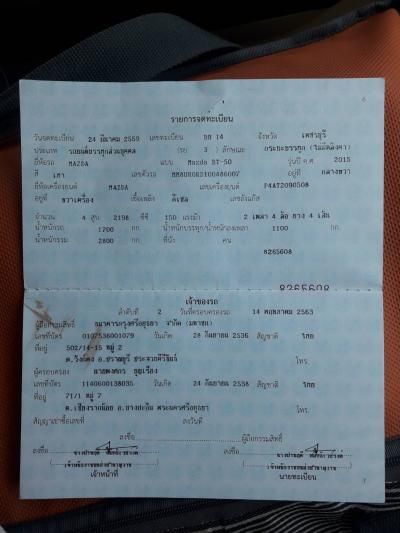 รายการจดทะเบียน
วันจดทะเบียน 24 มีนาคม 2559 เลขทะเบียน 14 จังหวัด เพชรบุรี
ประเภท รถยนต์บรรทุกส่วนบุคคล (รย 3 ) ลักษณะ กระบะบรรทุก
ยี่ห้อรถ MAZDA แบบ Mazda BT-50 รุ่นปี ค.ศ. 2015
สี เทา เลขตัวรถ อยู่ที่ กลางขวา
ยี่ห้อเครื่องยนต์ MAZDA เลขเครื่องยนต์ P4AT2090508
อยู่ที่ ขวาเครื่อง เชื้อเพลิง ดีเซล เลขถังแก๊ส
จำนวน 4 สูบ 2198 ซีซี 150 แรงม้า 2 เพลา 4 ล้อ ยาง 4 เส้น
น้ำหนักรถ 1700 กก. น้ำหนักบรรทุก/น้ำหนักลงเพลา 1100 กก.
น้ำหนักรวม 2800 กก. ที่นั่ง คน
8265608
8265608
เจ้าของรถ
ลำดับที่ 2 วันที่ครอบครองรถ 14 พฤษภาคม 2563
ผู้ถือกรรมสิทธิ์ ธนาคารกรุงศรีอยุธยา จำกัด (มหาชน)
เลขที่บัตร 0107536001079 วันเกิด 28 กันยายน 2536 สัญชาติ ไทย
ที่อยู่ 502/14-15 หมู่ 2
ต.วังก์พง อ.ปราณบุรี ประจวบคีรีขันธ์ โทร.
ผู้ครอบครอง
เลขที่บัตร 1140600138035 วันเกิด 24 กันยายน 2538 สัญชาติ ไทย
ที่อยู่ 71/1 หมู่ 7
ต.เชียงรากน้อย อ.บางปะอิน พระนครศรีอยุธยา โทร.
สัญญาเช่าซื้อเลขที่ ลงวันที่
ลงชื่อ ผู้ถือกรรมสิทธิ์
ลงชื่อ ลงชื่อ
เจ้าหน้าที่ นายทะเบียน